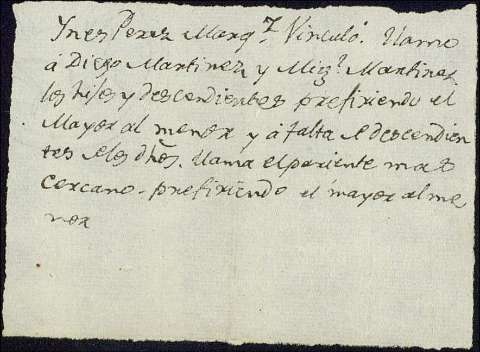 Ynes Perez Marq.z Vinculó. Llamo
á Diego Martinez y Mig.l Martinez
los hijos y descendientes prefiriendo el
Mayor al menor y á falta de descendien
tes de los dhôs. llama el pariente mas
cercano prefiriendo el mayor al me
nor